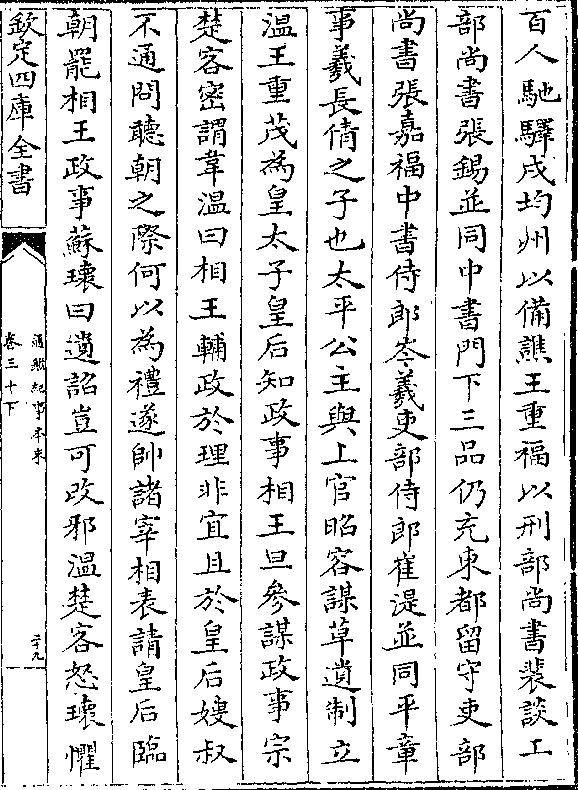 百人馳驛戍均州以備譙王重福以刑部尚書裴談工
部尚書張錫並同中書門下三品仍充東都留守吏部
尚書張嘉福中書侍郎岑羲吏部侍郎崔湜並同平章
事羲長倩之子也太平公主與上官昭容謀草遺制立
溫王重茂為皇太子皇后知政事相王旦參謀政事宗
楚客密謂韋溫曰相王輔政於理非宜且於皇后嫂叔
不通問聽朝之際何以為禮遂帥諸宰相表請皇后臨
朝罷相王政事蘇瓌曰遺詔豈可改邪溫楚客怒瓌懼
欽定四庫全書
通鑑紀事本末
卷三十下
二十九